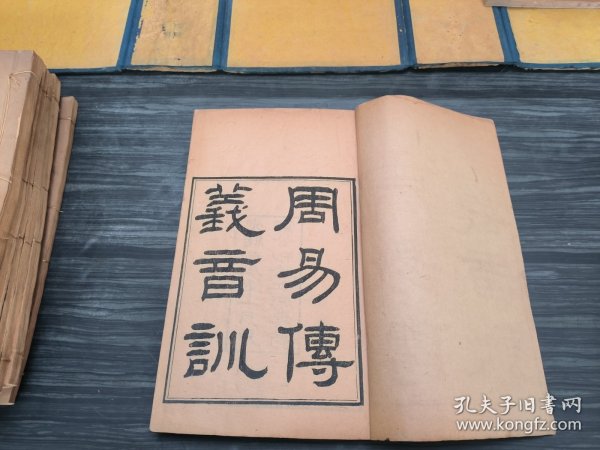 周易傳
義音訓
孔夫子旧书网
www.kongfz.com